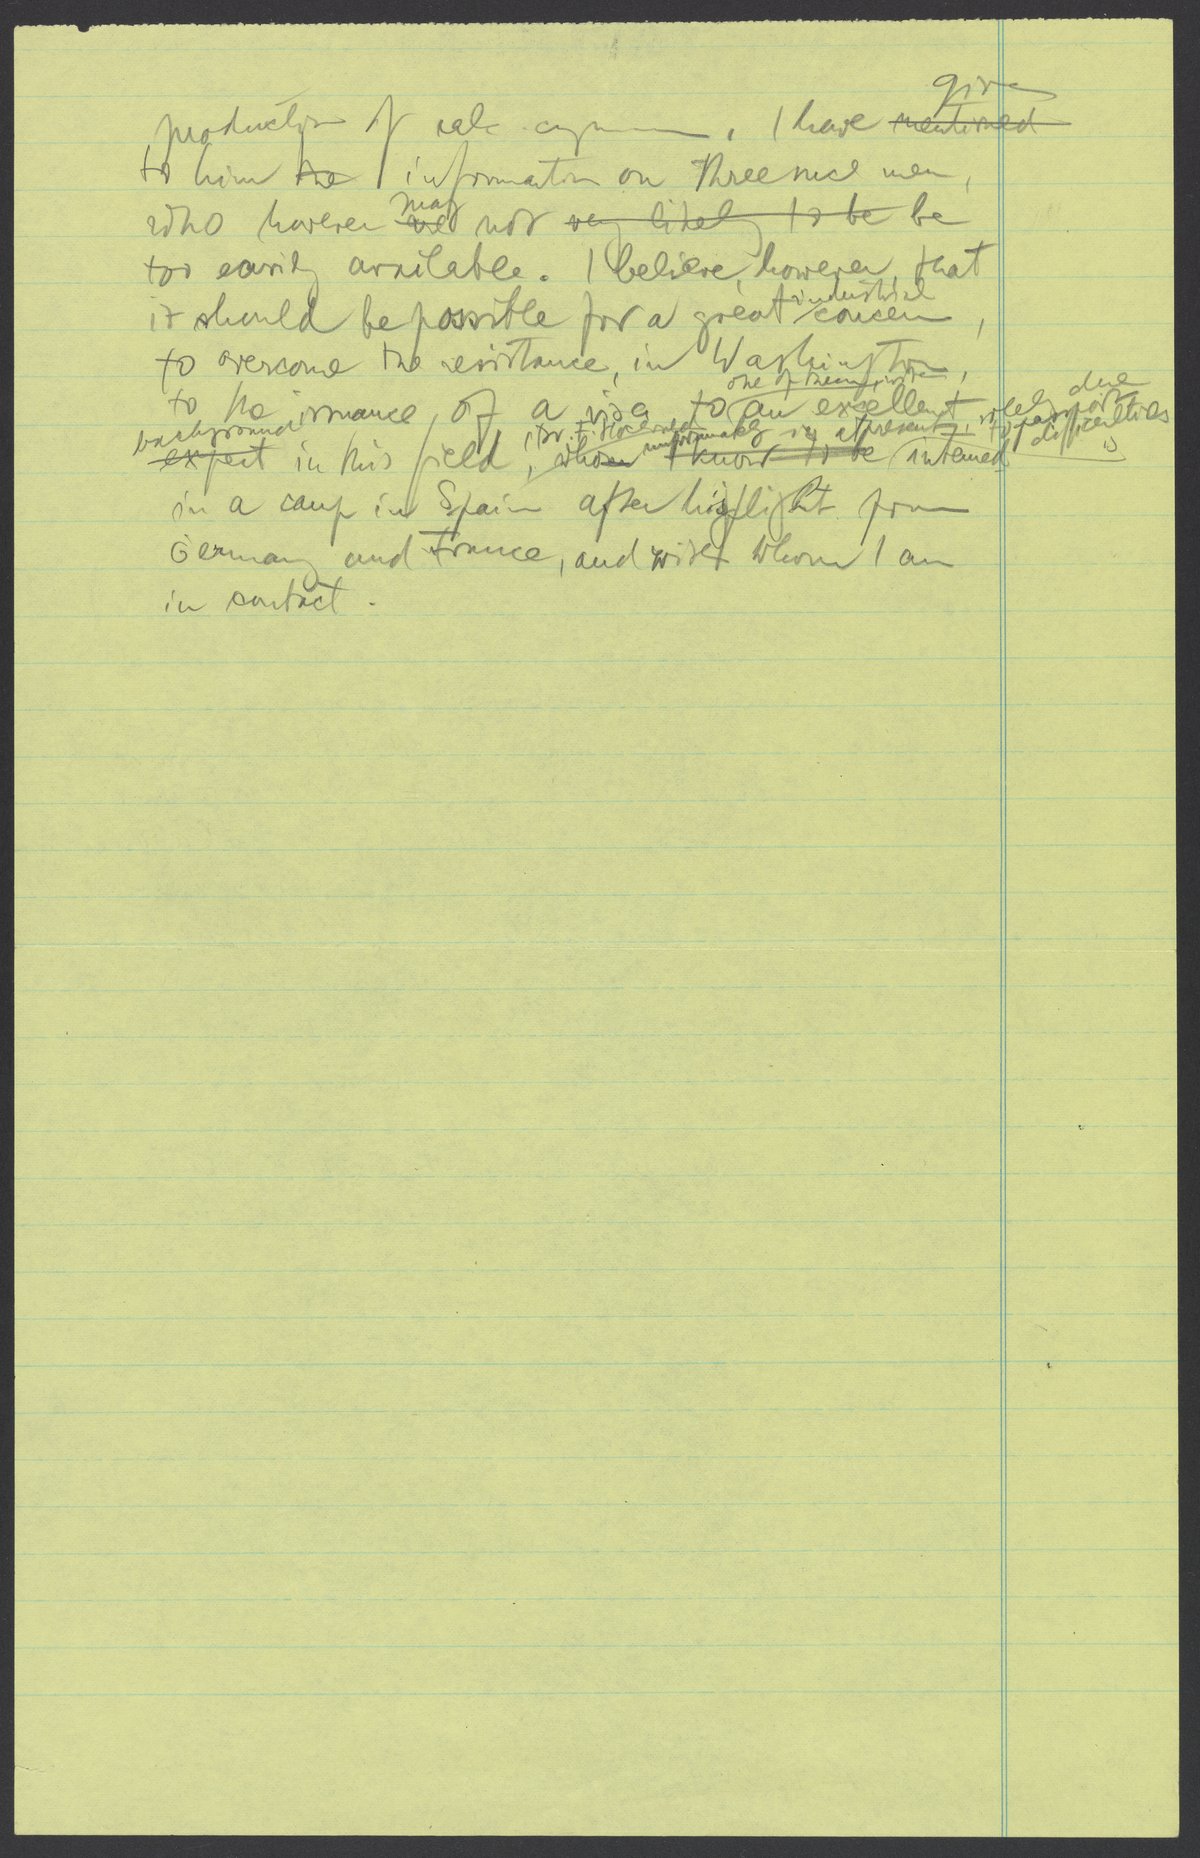 give
production of I have mentioned
to him the information on three such men,
who however may are not very likely to be be
too easily available. I believe, however, that
it should be possible for a great industrial concern,
to overcome the resistance, in Washington,
one of them, with
to the issuance, of a visa, to an excellent due
background unfortunately at present, to passport
expert in this field, whom I know to be interned difficulties is
in a camp in Spain after his flight from
Germany and France, and with whom I am
in contact.